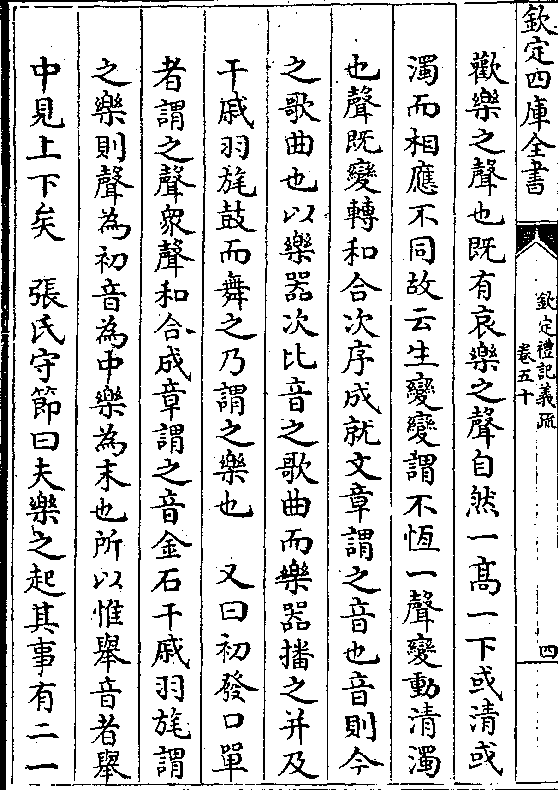 欽定四庫全書
欽定禮記義疏
卷五十
四
歡樂之聲也既有哀樂之聲自然一髙一下或清或
濁而相應不同故云生變變謂不恆一聲變動清濁
也聲既變轉和合次序成就文章謂之音也音則今
之歌曲也以樂器次比音之歌曲而樂器播之并及
干戚羽旄鼓而舞之乃謂之樂也　又曰初發口單
者謂之聲衆聲和合成章謂之音金石干戚羽旄謂
之樂則聲為初音為中樂為末也所以惟舉音者舉
中見上下矣　張氏守節曰夫樂之起其事有二一